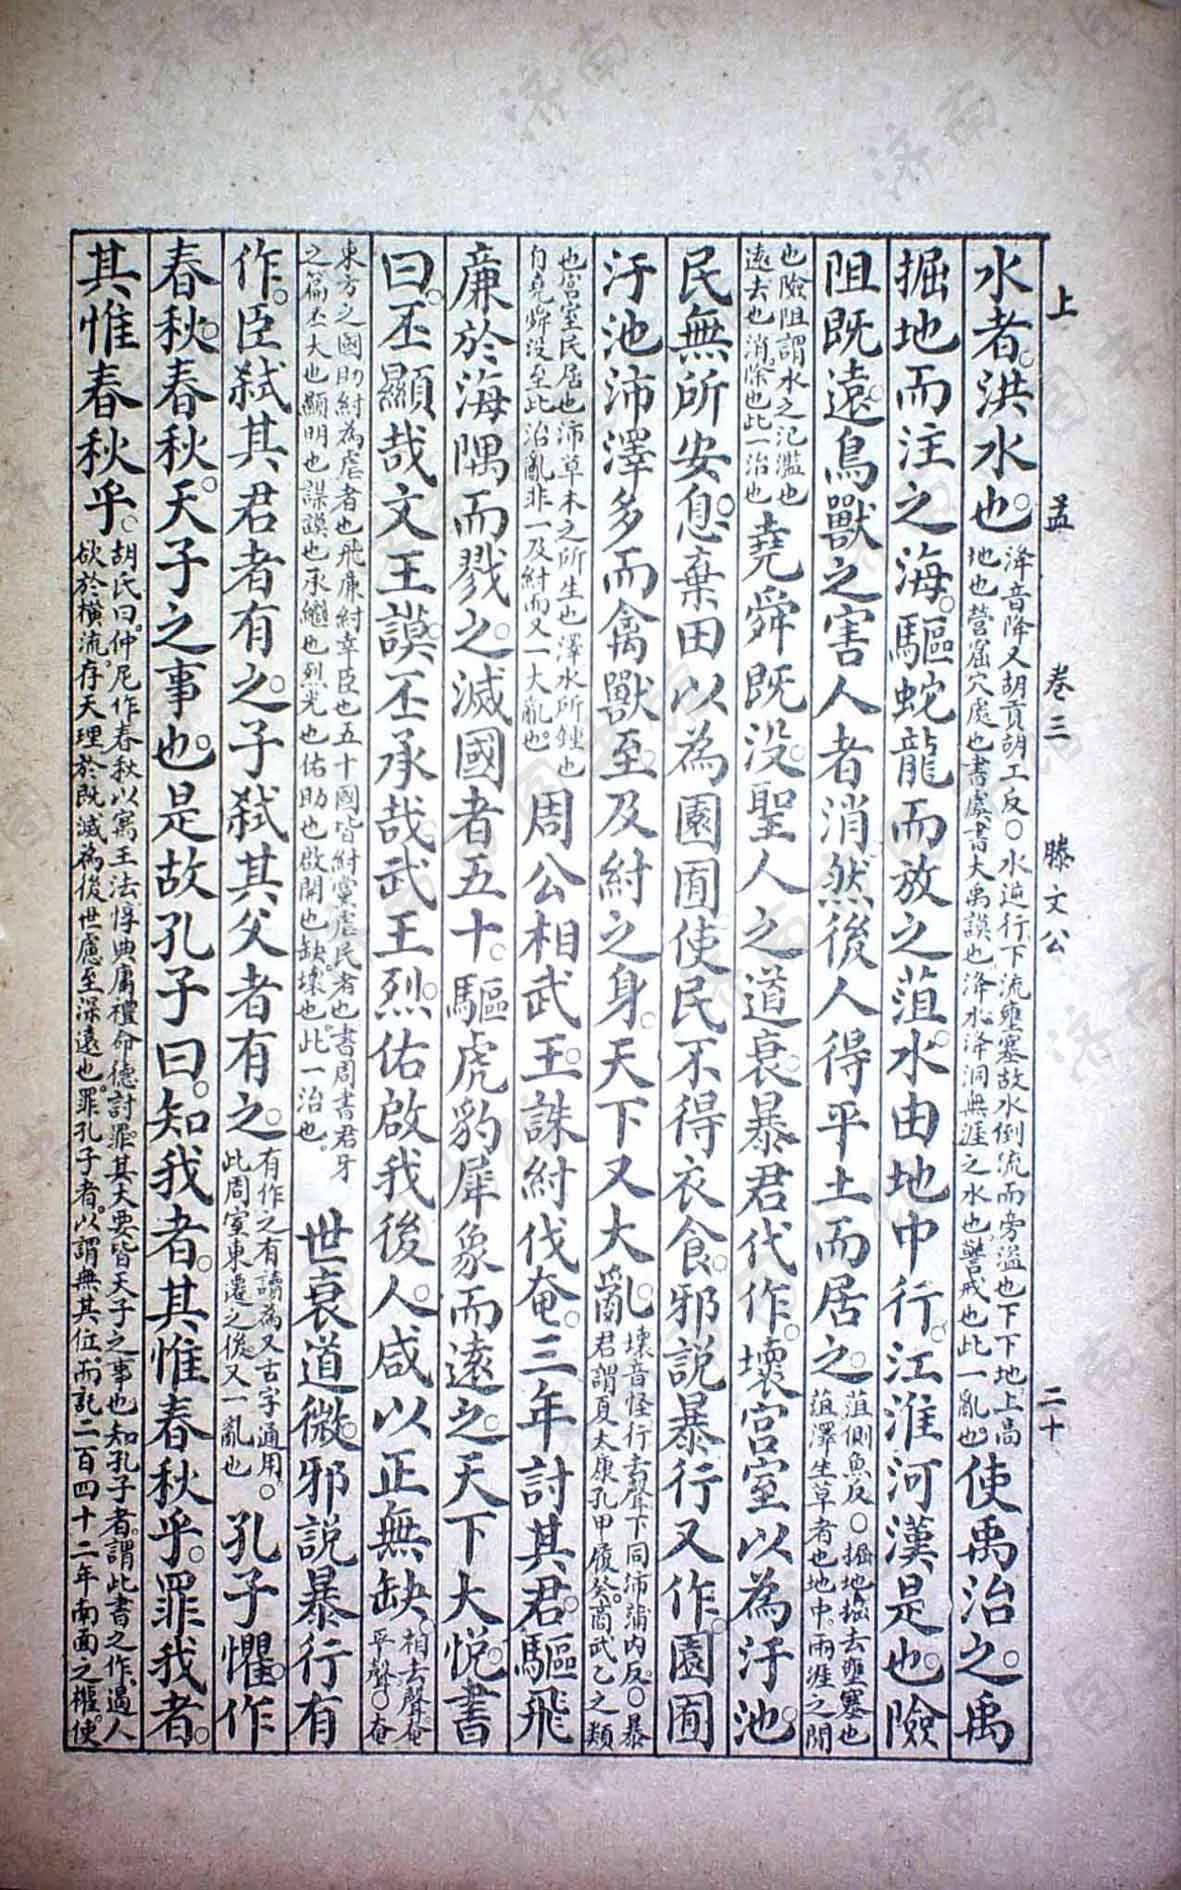 上 孟 卷三 滕文公 二十
水者。洪水也。洚音降又胡貢胡工反○水逆行下流壅塞故水倒流而旁溢也下下地上高地也營窟穴處也書虞書大禹謨也洚水洚洞無涯之水也警戒也此一亂也使禹治之。禹
掘地而注之海。驅蛇龍而放之菹。水由地中行。江淮河漢是也。險
阻既遠。鳥獸之害人者消。然後人得平土而居之。菹側魚反。○掘地掘去壅塞也菹澤生草者也地中。兩涯之間
也險阻謂水之氾濫也遠去也消除也此一治也堯舜既沒。聖人之道衰。暴君代作。壞宮室以為汙池。
民無所安息。棄田以為園囿使民不得衣食。邪說暴行又作。園囿
汙池沛澤多而禽獸至。及紂之身。天下又大亂。壞音怪行去聲下同沛蒲內反。○暴君謂夏太康孔甲履癸。商武乙之類
也宮室民居也沛草木之所生也澤水所鍾也自堯舜沒至此治亂非一及紂而又一大亂也。周公相武王。誅紂伐奄。三年討其君。驅飛
廉於海隅而戮之。滅國者五十。驅虎豹犀象而遠之。天下大悅。書
曰。丕顯哉文王謨。丕承哉。武王烈。佑啟我後人。咸以正無缺。相去聲奄平聲○奄
東方之國助紂為虐者也飛廉紂幸臣也五十國皆紂黨虐民者也書周書君牙之篇丕大也顯明也謨謀也承繼也烈光也佑助也啟開也缺壞也。此一治也。世衰道微。邪說暴行有
作。臣弒其君者有之。子弒其父者有之。有作之有讀為又古字通用。此周室東遷之後又一亂也孔子懼。作
春秋。春秋。天子之事也。是故孔子曰。知我者。其惟春秋乎。罪我者。
其惟春秋乎。胡氏曰。仲尼作春秋以寓王法惇典庸禮命德討罪其大要皆天子之事也知孔子者。謂此書之作。遏人欲於橫流。存天理於既滅為後世慮至深遠也。罪孔子者。以謂無其位而託二百四十二年南面之權。使